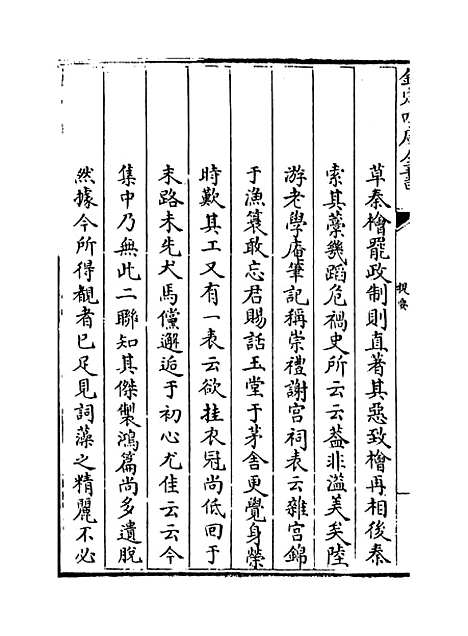 欽定四庫全書
提要
草秦檜罷政制則直著其惡致檜再相後奏
索其藁幾蹈危禍史所云云葢非溢美矣陸
游老學庵筆記稱崇禮謝宫祠表云雜宫錦
于漁簑敢忘君賜話玉堂于茅舍更覺身榮
時歎其工又有一表云欲挂衣冠尚低回于
末路未先犬馬儻邂逅于初心尤佳云云今
集中乃無此二聯知其傑製鴻篇尚多遺脱
然據今所得觀者已足見詞藻之精麗不必